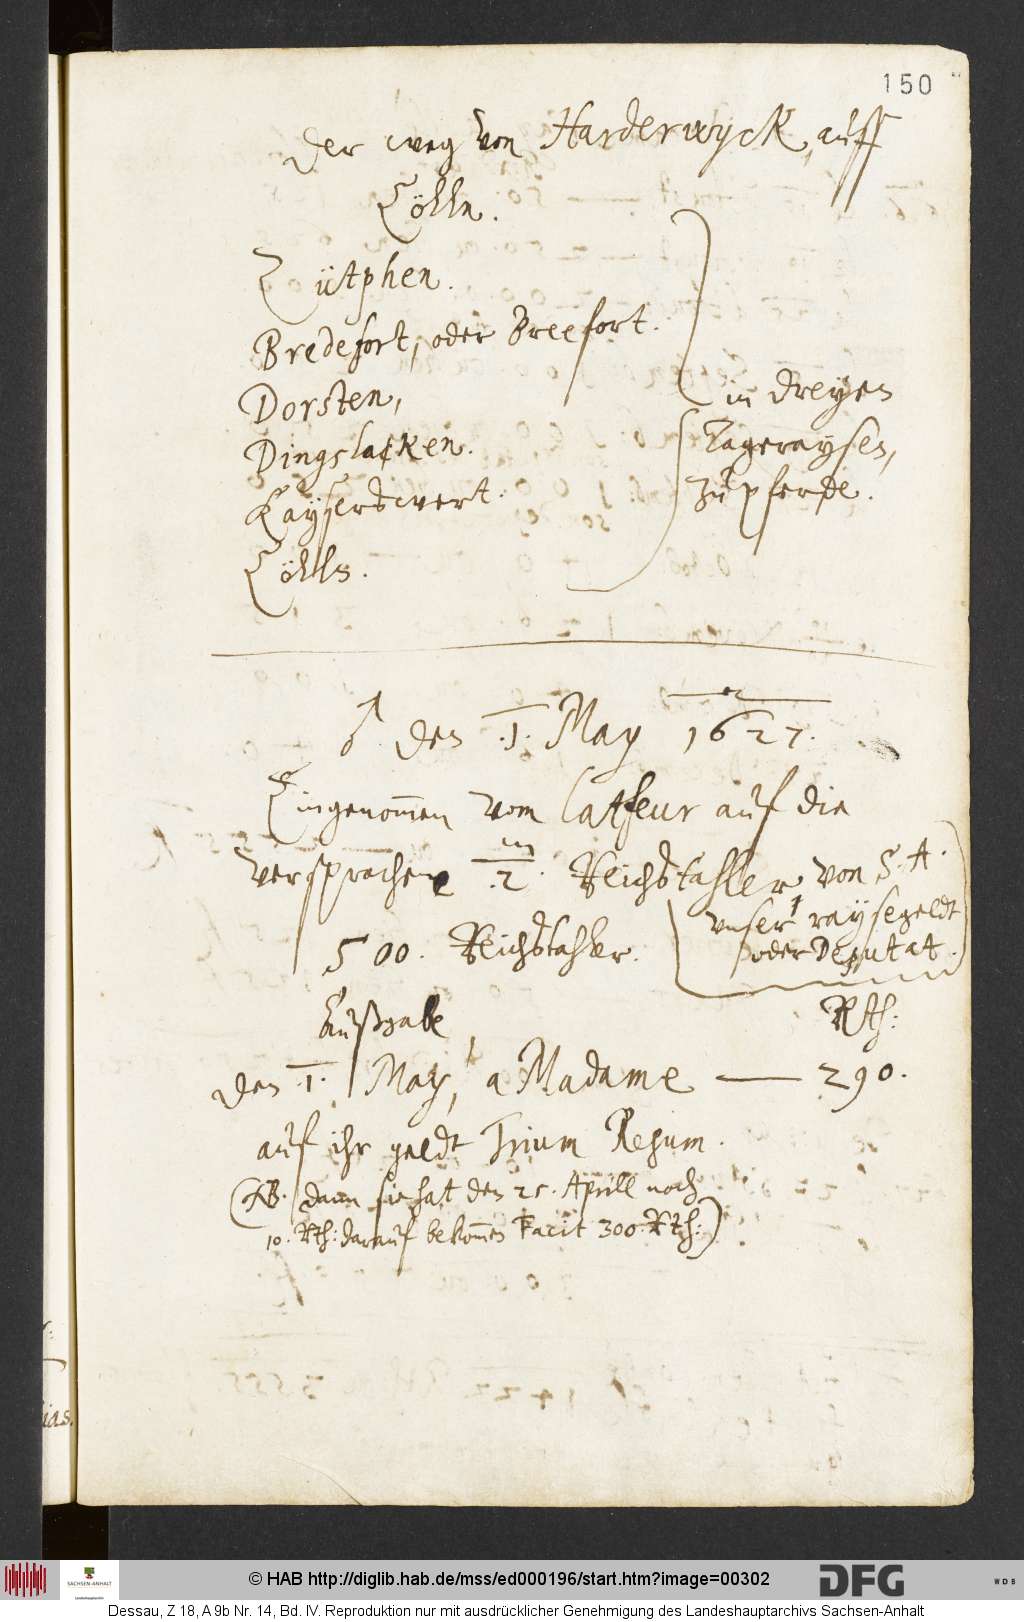 150
Der weg von Harderwyck, auff
Cölln.
Zütphen.
Bredefort, oder Breefort.
Dorsten,
Dingslacken.
Kayserswert.
Cölln.
in dreyen
Tageraysen,
zu pferde.
♂ den .1. May 1627.
Eingenommen vom Latfeur auf die
versprochene .2. m Reichsthaller, von S. A.
500. Reichsthaler.
unser raysegeldt
oder Deputat.
Außgabe
Rth:
den .1. May, a Madame — 290.
auf ihr geldt Trium Regum.
(NB. dann sie hat den 25. Aprill noch
10. Rth: darauf bekommen Facit 300. Rth:)
ias.
SACHSEN-ANHALT
Landeshauptarchiv
© HAB http://diglib.hab.de/mss/ed000196/start.htm?image=00302
DFG
WDB
Dessau, Z 18, A 9b Nr. 14, Bd. IV. Reproduktion nur mit ausdrücklicher Genehmigung des Landeshauptarchivs Sachsen-Anhalt